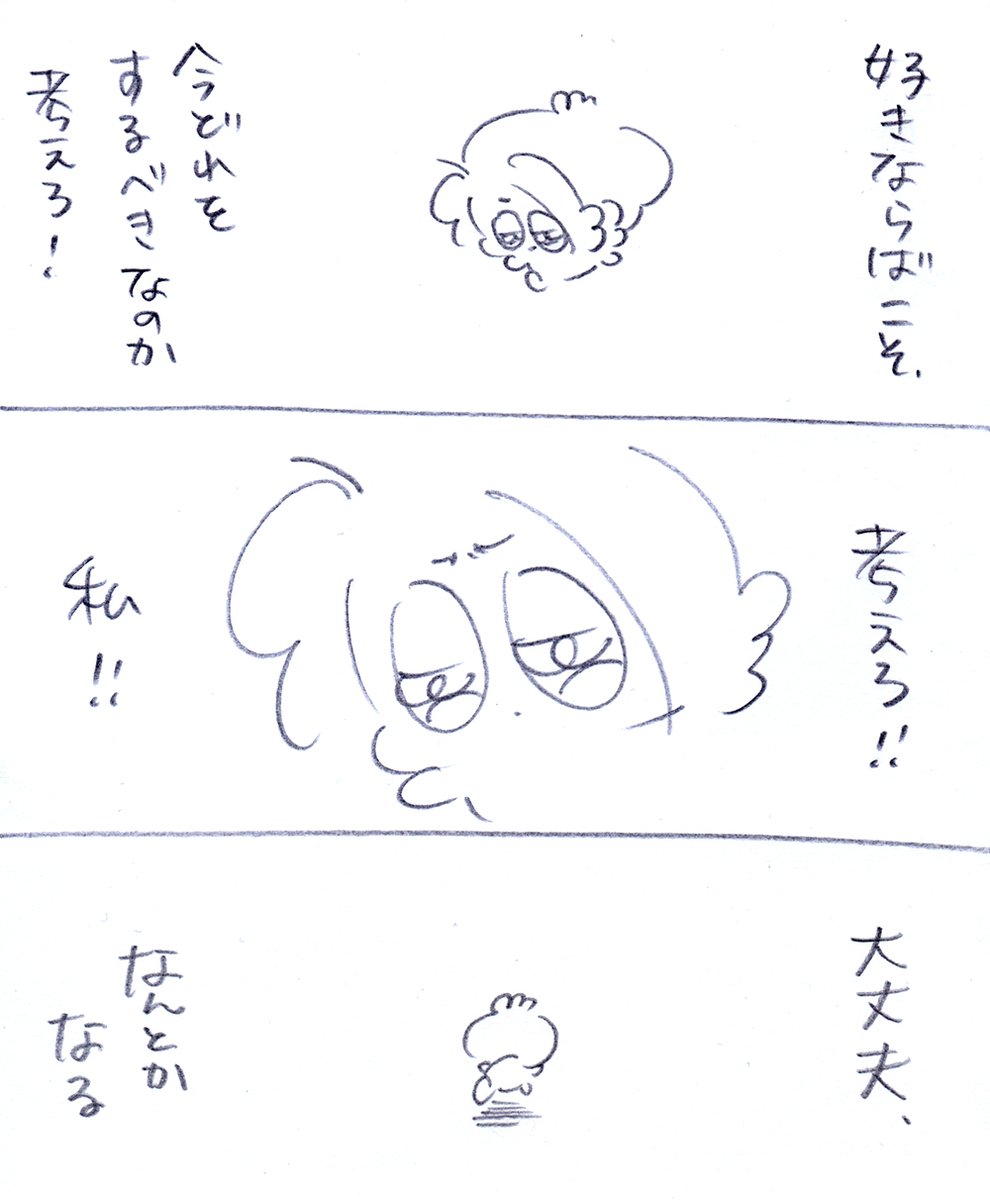 好きならばこそ、
今どれを
するべきなのか
考えろ！
考えろ！！
私！！
大丈夫、
なんとか
なる